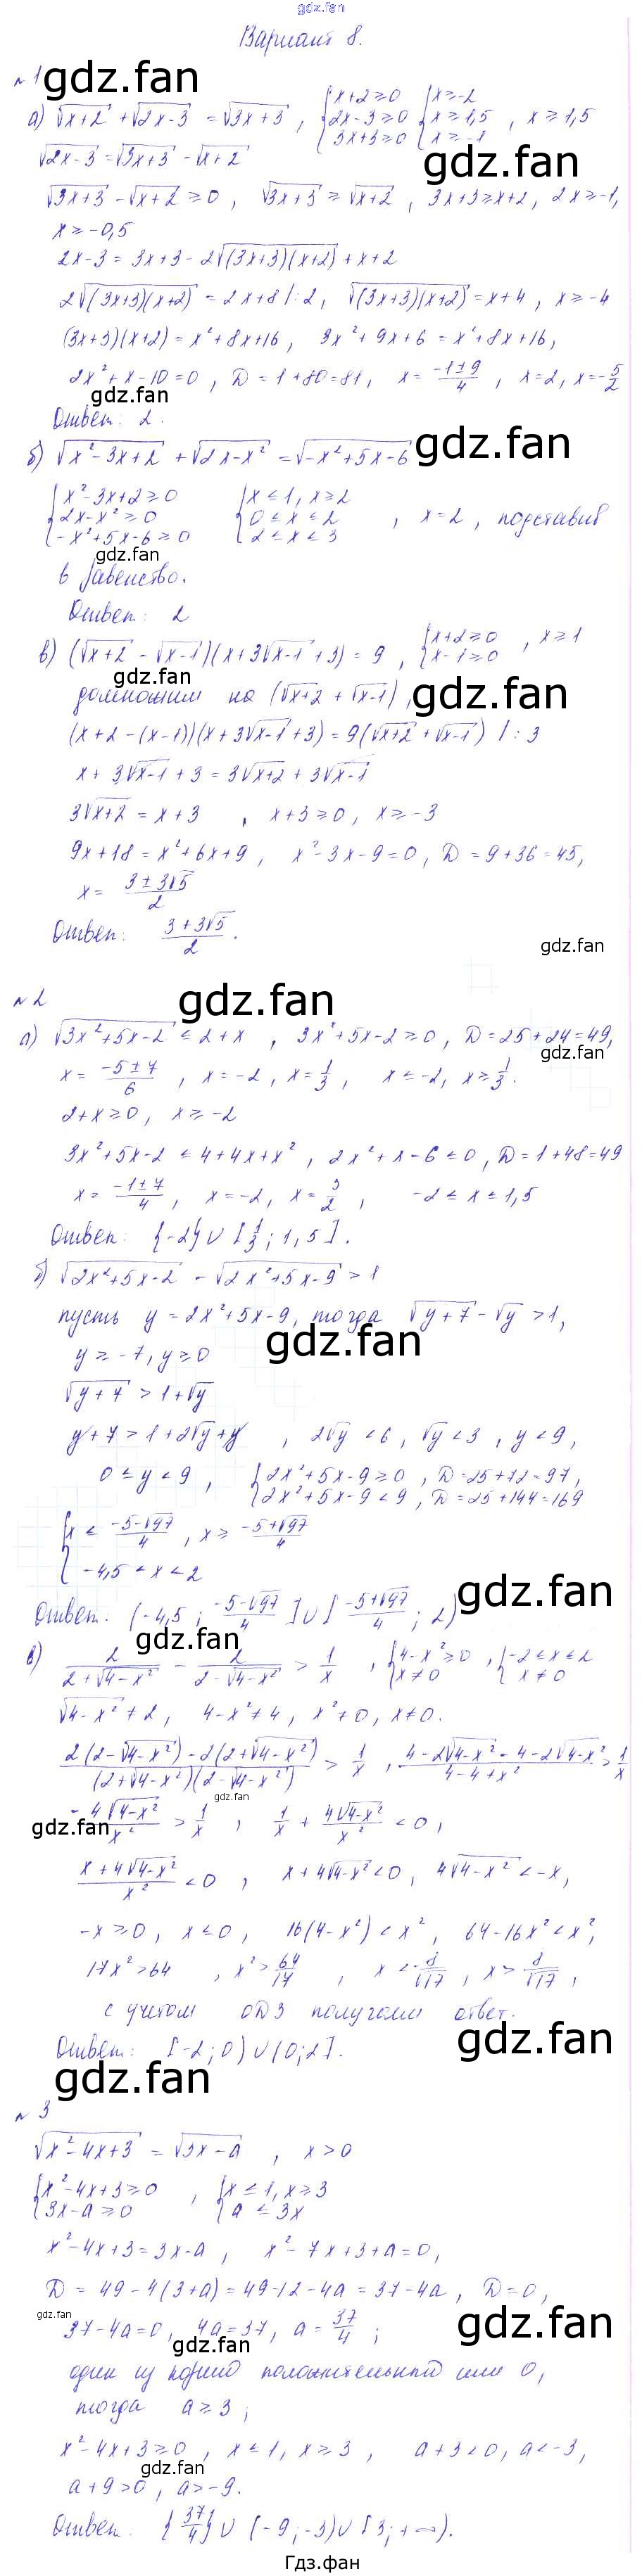 gdz.fan
Вариант 8.
№1
gdz.fan
а) √(x+2) + √(2x-3) = √(3x+3) , {x+2≥0 2x-3≥0 3x+3≥0 {x≥-2 x≥1,5 x≥-1 , x≥1,5
√(2x-3) = √(3x+3) - √(x+2)
gdz.fan
√(3x+3) - √(x+2) ≥ 0 , √(3x+3) ≥ √(x+2) , 3x+3≥x+2, 2x≥-1,
x≥-0,5
2x-3 = 3x+3-2√((3x+3)(x+2)) + x+2
2√((3x+3)(x+2)) = 2x+8 |:2, √((3x+3)(x+2)) = x+4, x≥-4
(3x+3)(x+2) = x²+8x+16, 3x²+9x+6 = x²+8x+16,
2x²+x-10=0, D=1+80=81, x= (-1±9)/4 , x=2, x=-5/2
gdz.fan
Ответ: 2.
б) √(x²-3x+2) + √(2x-x²) = √(-x²+5x-6)
gdz.fan
{x²-3x+2≥0 2x-x²≥0 -x²+5x-6≥0 {x≤1, x≥2 0≤x≤2 2≤x≤3 , x=2, подставив
gdz.fan
в равенство.
Ответ: 2
в) (√(x+2) - √(x-1))(x+3√(x-1)+3) = 9 , {x+2≥0 x-1≥0 , x≥1
gdz.fan
домножим на (√(x+2) + √(x-1)),
gdz.fan
(x+2-(x-1))(x+3√(x-1)+3) = 9(√(x+2)+√(x-1)) |:3
x+3√(x-1)+3 = 3√(x+2)+3√(x-1)
3√(x+2) = x+3 , x+3≥0, x≥-3
9x+18 = x²+6x+9, x²-3x-9=0, D=9+36=45,
x= (3±3√5)/2
Ответ: (3+3√5)/2.
gdz.fan
№2
gdz.fan
а) √(3x²+5x-2) ≤ 2+x , 3x²+5x-2≥0, D=25+24=49,
gdz.fan
x= (-5±7)/6 , x=-2, x=1/3, x≤-2, x≥1/3.
2+x≥0, x≥-2
3x²+5x-2 ≤ 4+4x+x², 2x²+x-6≤0, D=1+48=49
x= (-1±7)/4, x=-2, x=3/2, -2≤x≤1,5
Ответ: {-2}∪[1/3; 1,5].
б) √(2x²+5x-2) - √(2x²+5x-9) > 1
пусть y=2x²+5x-9, тогда √(y+7) - √y > 1,
gdz.fan
y≥-7, y≥0
√(y+7) > 1+√y
y+7 > 1+2√y+y , 2√y<6, √y<3, y<9,
0≤y<9, {2x²+5x-9≥0, D=25+72=97, 2x²+5x-9<9, D=25+144=169
{x≤ (-5-√97)/4, x≥ (-5+√97)/4
-4,5<x<2
gdz.fan
Ответ: (-4,5; (-5-√97)/4]∪[(-5+√97)/4; 2)
gdz.fan
в) 2/(2+√(4-x²)) - 2/(2-√(4-x²)) > 1/x , {4-x²≥0 x≠0 , {-2≤x≤2 x≠0
√(4-x²)≠2, 4-x²≠4, x²≠0, x≠0.
(2(2-√(4-x²))-2(2+√(4-x²)))/((2+√(4-x²))(2-√(4-x²))) > 1/x , (4-2√(4-x²)-4-2√(4-x²))/(4-4+x²) > 1/x
gdz.fan
gdz.fan
-4√(4-x²)/x² > 1/x , 1/x + 4√(4-x²)/x² < 0,
(x+4√(4-x²))/x² < 0 , x+4√(4-x²)<0, 4√(4-x²)<-x,
-x≥0, x≤0, 16(4-x²)<x², 64-16x²<x²,
17x²>64 , x²>64/17 , x<-8/√17, x>8/√17,
с учетом ОДЗ получаем ответ.
gdz.fan
Ответ: [-2;0)∪(0;2].
gdz.fan
№3
√(x²-4x+3) = √(3x-a) , x>0
{x²-4x+3≥0 3x-a≥0 , {x≤1, x≥3 a≤3x
x²-4x+3=3x-a, x²-7x+3+a=0,
D=49-4(3+a)=49-12-4a=37-4a, D=0,
gdz.fan
gdz.fan
37-4a=0, 4a=37, a=37/4;
gdz.fan
один из корней положительный или 0,
тогда a≥3;
x²-4x+3≥0, x≤1, x≥3, a+3<0, a<-3,
gdz.fan
a+9>0, a>-9.
Ответ: {37/4}∪(-9;-3)∪[3;+∞).
Гдз.фан